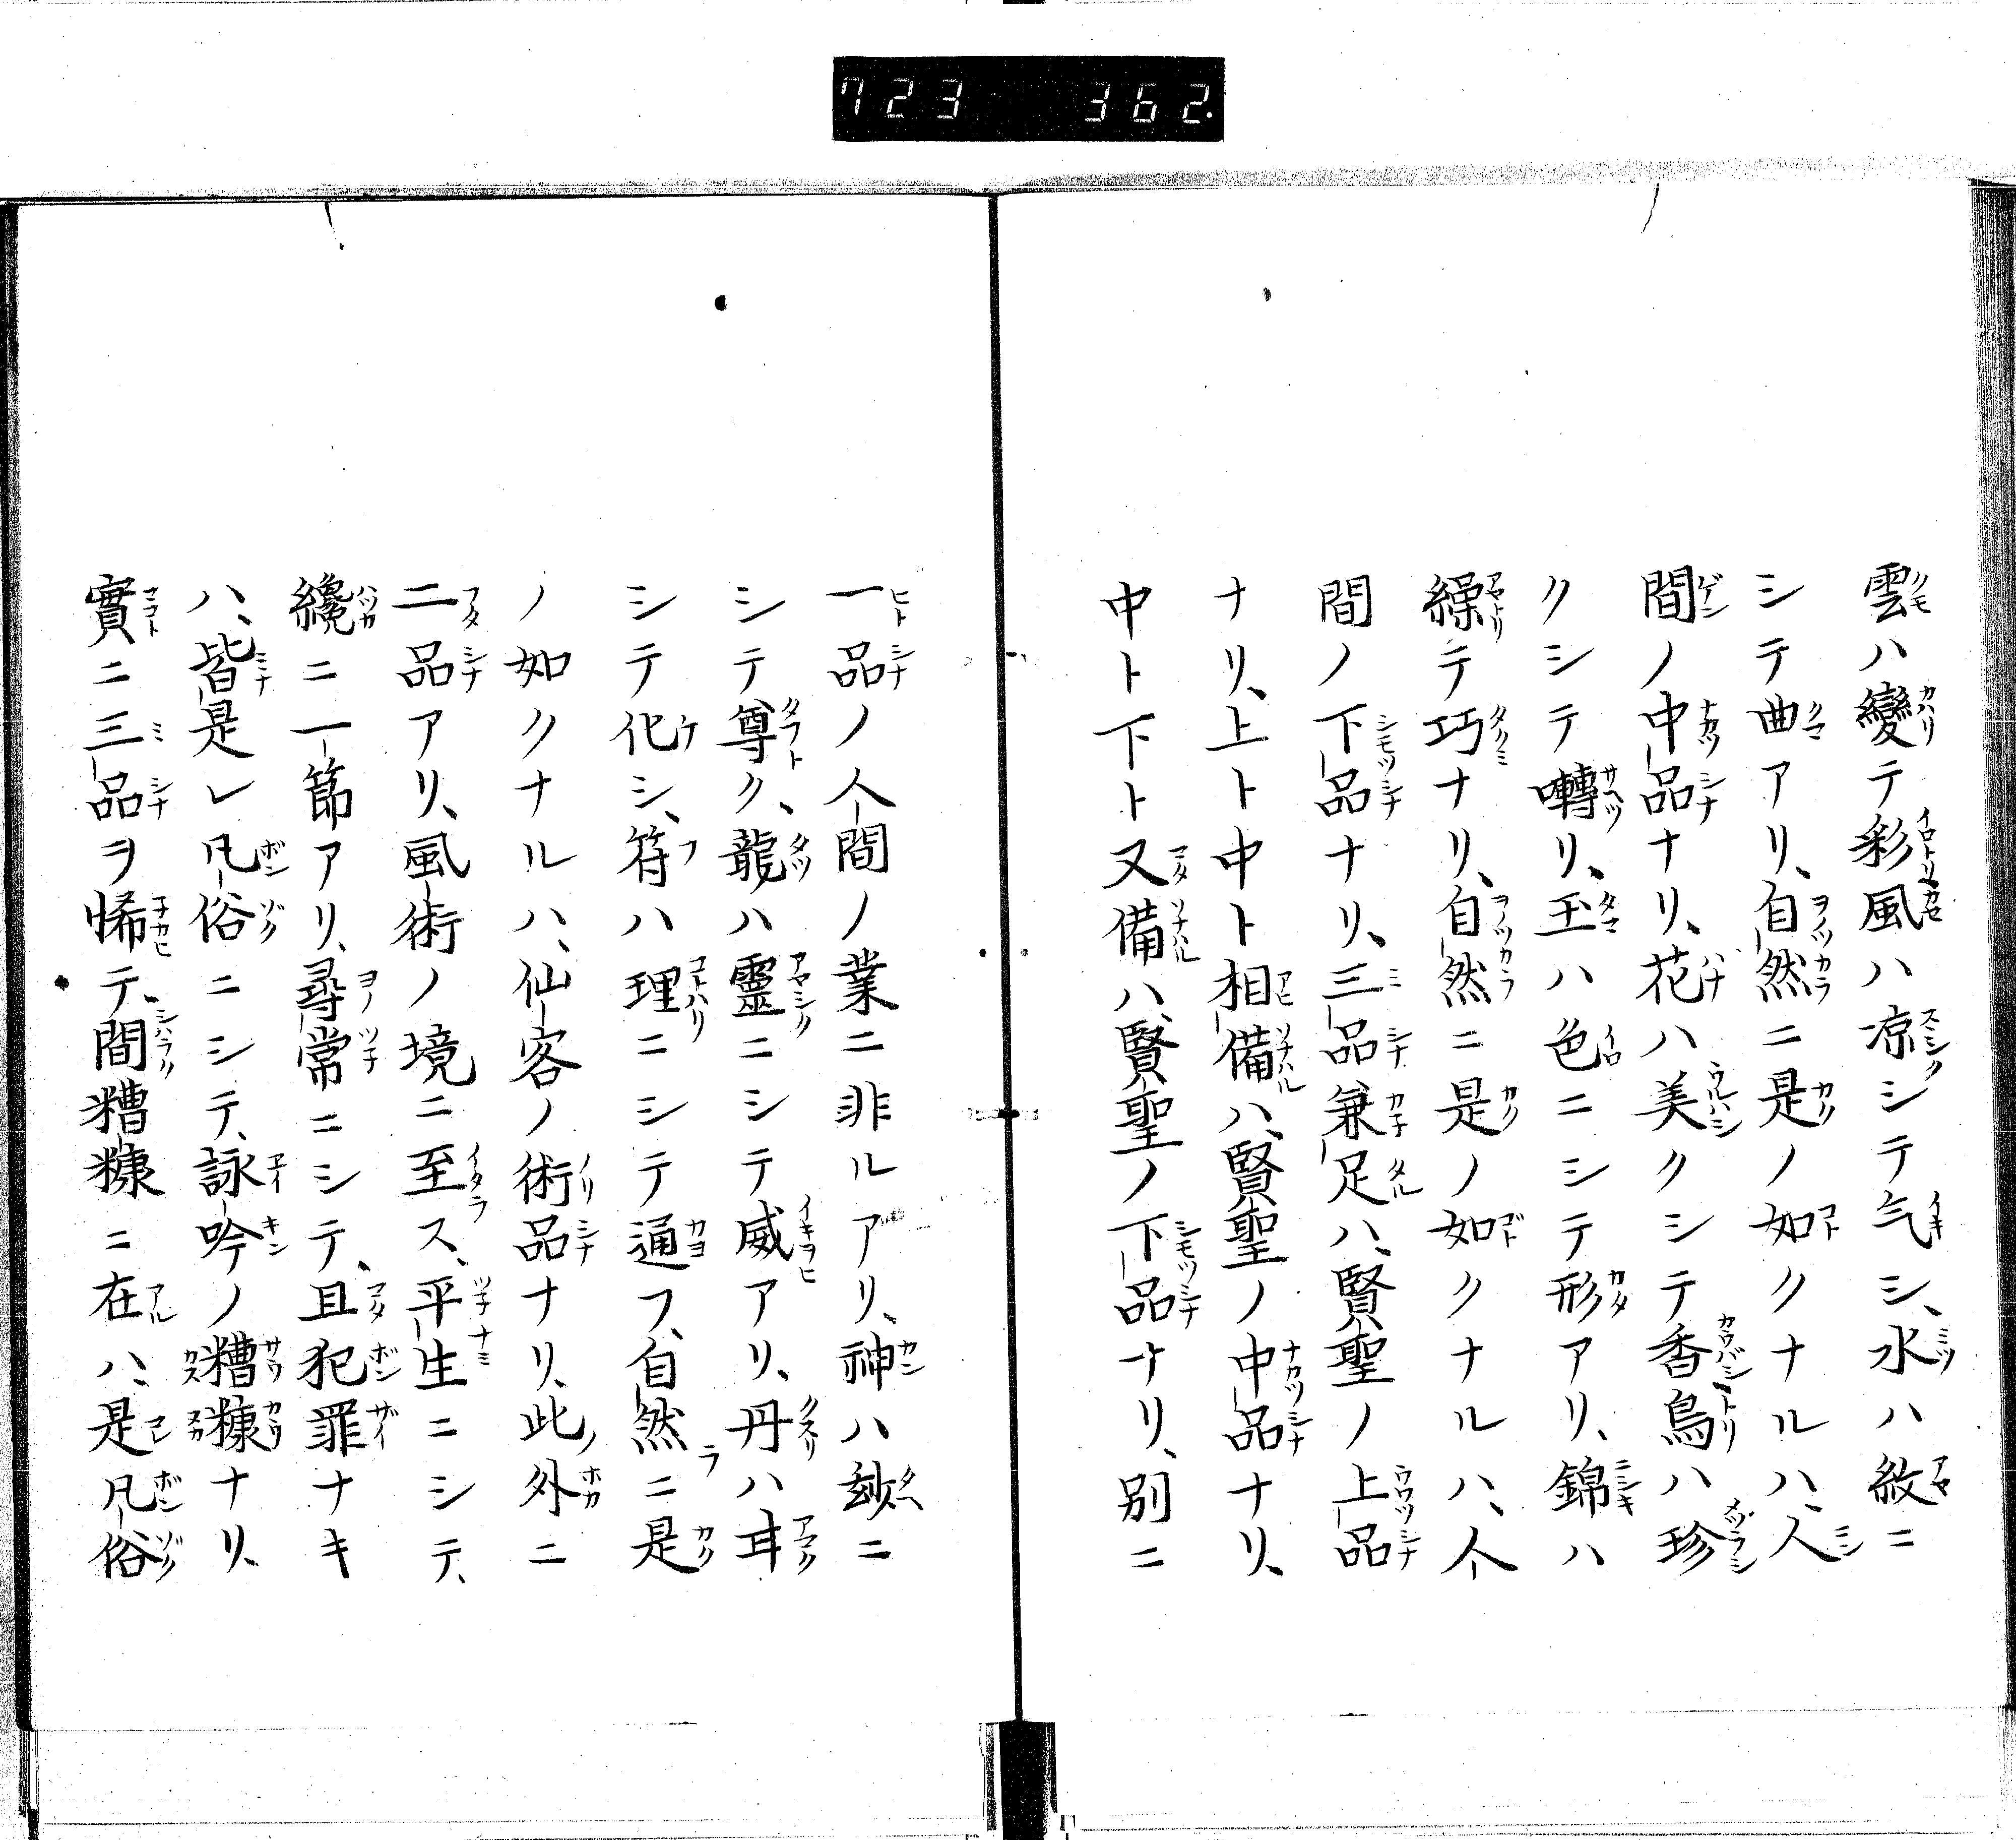 723 362.
雲ハ變テ彩風ハ凉シテ气シ、水ハ紋ニ
シテ曲アリ、自然ニ是ノ如クナルハ、人
間ノ中品ナリ、花ハ美クシテ香鳥ハ珍
クシテ囀リ、玉ハ色ニシテ形アリ、錦ハ
繰テ巧ナリ、自然ニ是ノ如クナルハ、人
間ノ下品ナリ、三品兼足ハ、賢聖ノ上品
ナリ、上ト中ト相備ハ、賢聖ノ中品ナリ、
中ト下ト又備ハ、賢聖ノ下品ナリ、別ニ
一品ノ人間ノ業ニ非ルアリ、神ハ玅ニ
シテ尊ク、龍ハ靈ニシテ威アリ、丹ハ耳
シテ化シ、符ハ理ニシテ通フ、自然ニ是
ノ如クナルハ、仙客ノ術品ナリ、此外ニ
二品アリ、風術ノ境ニ至ス、平生ニシテ、
纔ニ一節アリ、尋常ニシテ、且犯罪ナキ
ハ、皆是レ凡俗ニシテ、詠吟ノ糟糠ナリ、
實ニ三品ヲ悕テ、間糟糠ニ在ハ、是凡俗